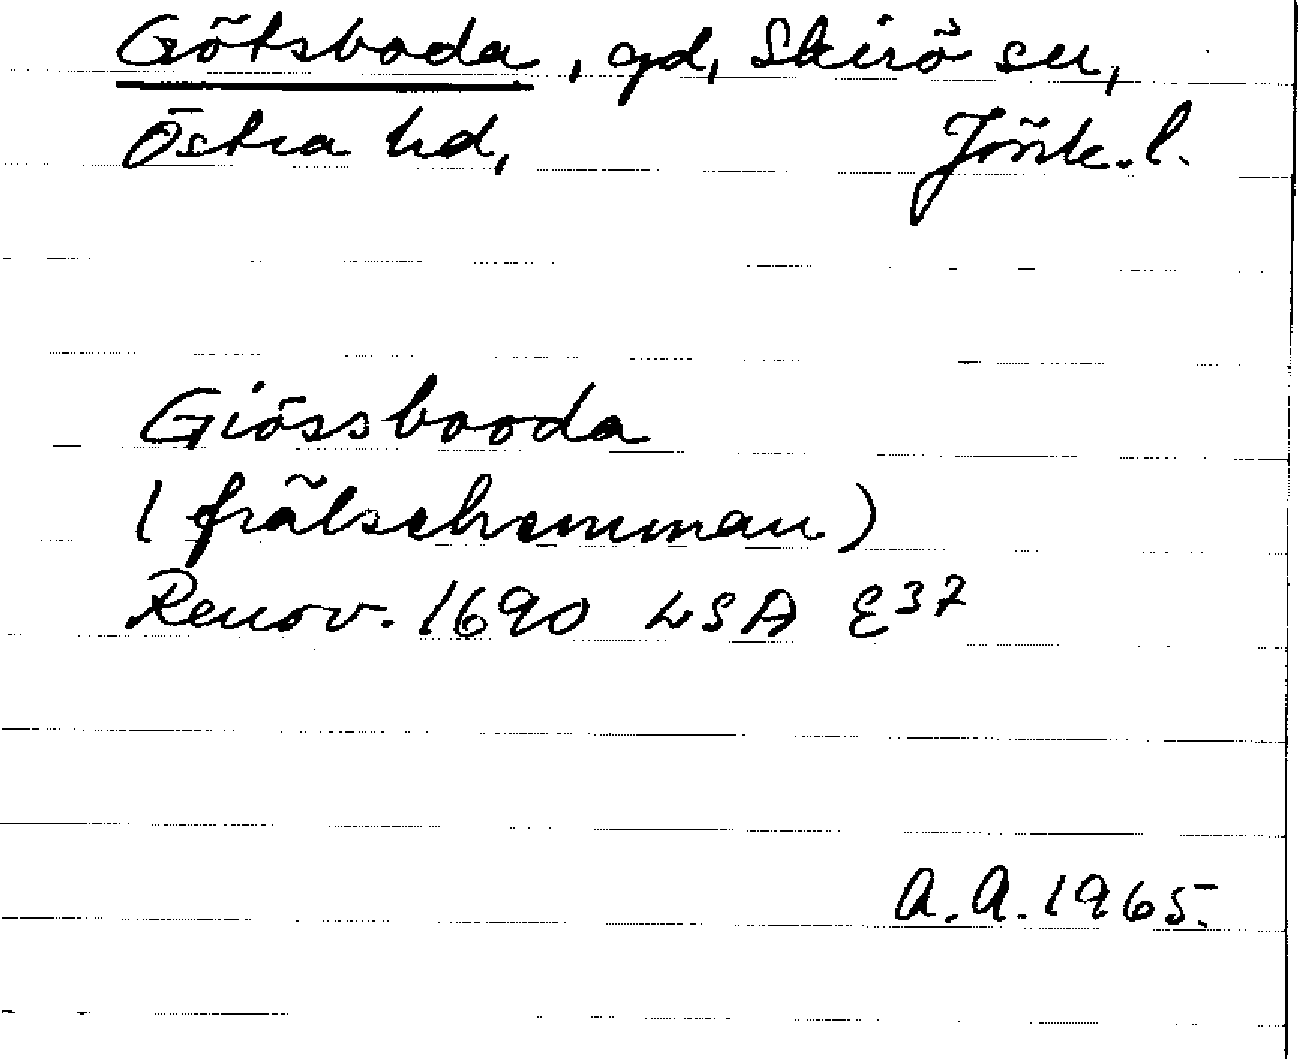 Götsboda, gd, Skirö sn,
Östra hd, Jönk.l.
Giössbooda
(frälsehemman)
Renov. 1690 LSA E37
A.A. 1965.